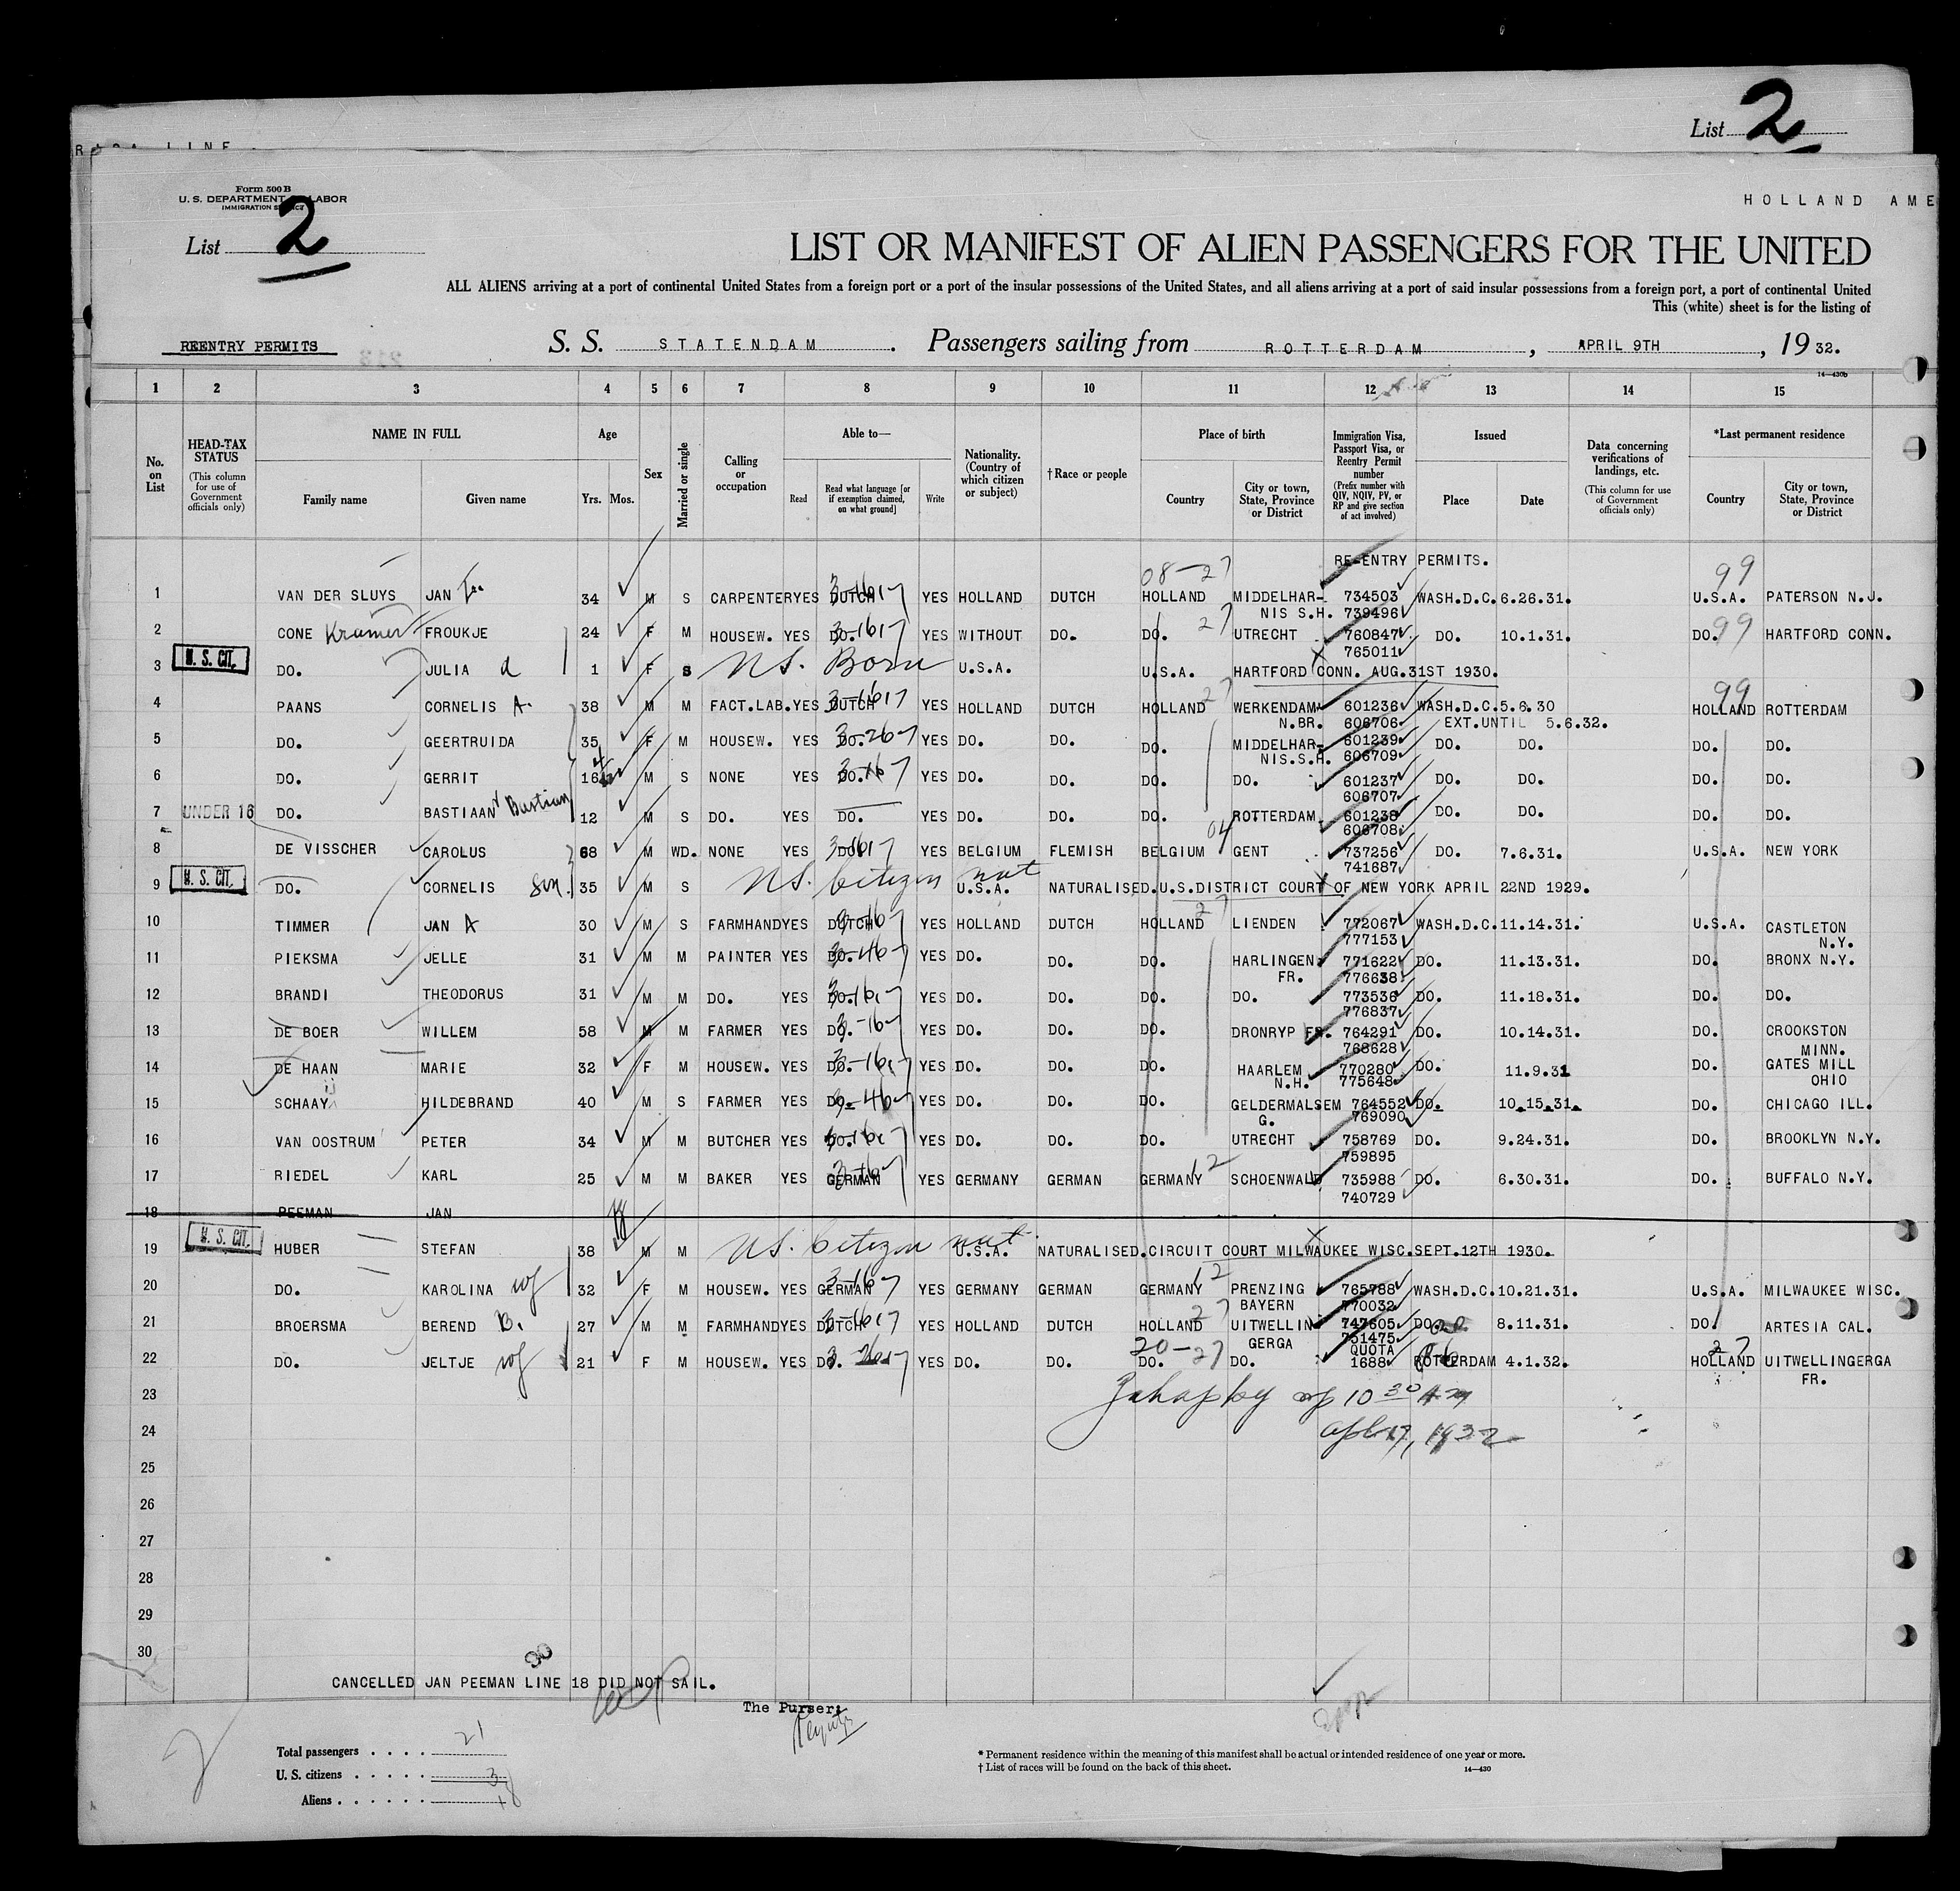 List 2
LINE
Form 500 B
U. S. DEPARTMENT OF LABOR
IMMIGRATION SERVICE
List 2
HOLLAND AME
LIST OR MANIFEST OF ALIEN PASSENGERS FOR THE UNITED
ALL ALIENS arriving at a port of continental United States from a foreign port or a port of the insular possessions of the United States, and all aliens arriving at a port of said insular possessions from a foreign port, a port of continental United
This (white) sheet is for the listing of
REENTRY PERMITS S. S. STATENDAM . Passengers sailing from ROTTERDAM , APRIL 9TH , 19 32.
14—430b
1 2 3 4 5 6 7 8 9 10 11 12 13 14 15
No. on List
HEAD-TAX STATUS (This column for use of Government officials only)
NAME IN FULL Family name Given name
Age Yrs. Mos.
Sex
Married or single
Calling or occupation
Able to— Read Read what language [or if exemption claimed, on what ground] Write
Nationality. (Country of which citizen or subject)
†Race or people
Place of birth Country City or town, State, Province or District
Immigration Visa, Passport Visa, or Reentry Permit number (Prefix number with QIV, NQIV, PV, or RP and give section of act involved)
Issued Place Date
Data concerning verifications of landings, etc. (This column for use of Government officials only)
*Last permanent residence Country City or town, State, Province or District
RE-ENTRY PERMITS.
08-27 99
1 VAN DER SLUYS JAN 34 M S CARPENTER YES DUTCH YES HOLLAND DUTCH HOLLAND MIDDELHAR- 734503 WASH.D.C. 6.26.31. U.S.A. PATERSON N.J.
NIS S.H. 739496
2 CONE Kramer FROUKJE 24 F M HOUSEW. YES DO. YES WITHOUT DO. DO. 27 UTRECHT 760847 DO. 10.1.31. DO. 99 HARTFORD CONN.
765011
3 U. S. CIT. DO. JULIA 1 F S US. Born U.S.A. U.S.A. HARTFORD CONN. AUG.31ST 1930.
27 99
4 PAANS CORNELIS A. 38 M M FACT.LAB. YES DUTCH YES HOLLAND DUTCH HOLLAND WERKENDAM 601236 WASH.D.C. 5.6.30 HOLLAND ROTTERDAM
N.BR. 606706 EXT.UNTIL 5.6.32.
5 DO. GEERTRUIDA 35 F M HOUSEW. YES DO. YES DO. DO. DO. MIDDELHAR- 601239 DO. DO. DO. DO.
NIS.S.H. 606709
6 DO. GERRIT 16 M S NONE YES DO. YES DO. DO. DO. DO. 601237 DO. DO. DO. DO.
606707
7 UNDER 16 DO. BASTIAAN Bastian 12 M S DO. YES DO. YES DO. DO. DO. ROTTERDAM 601238 DO. DO. DO. DO.
04 606708
8 DE VISSCHER CAROLUS 68 M WD. NONE YES DO. YES BELGIUM FLEMISH BELGIUM GENT 737256 DO. 7.6.31. U.S.A. NEW YORK
741687
9 U. S. CIT. DO. CORNELIS son. 35 M S US. Citizen nat U.S.A. NATURALISED.U.S.DISTRICT COURT OF NEW YORK APRIL 22ND 1929.
27
10 TIMMER JAN A 30 M S FARMHAND YES DUTCH YES HOLLAND DUTCH HOLLAND LIENDEN 772067 WASH.D.C. 11.14.31. U.S.A. CASTLETON
777153 N.Y.
11 PIEKSMA JELLE 31 M M PAINTER YES DO. YES DO. DO. DO. HARLINGEN 771622 DO. 11.13.31. DO. BRONX N.Y.
FR. 776638
12 BRANDI THEODORUS 31 M M DO. YES DO. YES DO. DO. DO. DO. 773536 DO. 11.18.31. DO. DO.
776837
13 DE BOER WILLEM 58 M M FARMER YES DO. YES DO. DO. DO. DRONRYP FR. 764291 DO. 10.14.31. DO. CROOKSTON
768628 MINN.
14 DE HAAN MARIE 32 F M HOUSEW. YES DO. YES DO. DO. DO. HAARLEM 770280 DO. 11.9.31 DO. GATES MILL
N.H. 775648 OHIO
15 SCHAAY ij HILDEBRAND 40 M S FARMER YES DO. YES DO. DO. DO. GELDERMALSEM 764552 DO. 10.15.31. DO. CHICAGO ILL.
G. 769090
16 VAN OOSTRUM PETER 34 M M BUTCHER YES DO. YES DO. DO. DO. UTRECHT 758769 DO. 9.24.31. DO. BROOKLYN N.Y.
12 759895
17 RIEDEL KARL 25 M M BAKER YES GERMAN YES GERMANY GERMAN GERMANY SCHOENWALD 735988 DO. 6.30.31. DO. BUFFALO N.Y.
740729
18 PEEMAN JAN
19 U. S. CIT. HUBER STEFAN 38 M M US. Citizen nat. U.S.A. NATURALISED.CIRCUIT COURT MILWAUKEE WISC.SEPT.12TH 1930.
12
20 DO. KAROLINA wf 32 F M HOUSEW. YES GERMAN YES GERMANY GERMAN GERMANY PRENZING 765788 WASH.D.C. 10.21.31. U.S.A. MILWAUKEE WISC.
BAYERN 770032
21 BROERSMA BEREND B. 27 M M FARMHAND YES DUTCH YES HOLLAND DUTCH HOLLAND 27 UITWELLIN 747605 DO. 8.11.31. DO. ARTESIA CAL.
GERGA 751475
20-27 QUOTA 27
22 DO. JELTJE wf 21 F M HOUSEW. YES DO. YES DO. DO. DO. DO. 1688 ROTTERDAM 4.1.32. HOLLAND UITWELLINGERGA
FR.
23 10 30 AM
24 17, 1932
25
26
27
28
29
30
CANCELLED JAN PEEMAN LINE 18 DID NOT SAIL.
The Purser:
Total passengers . . . . 21
U. S. citizens . . . . . 3
Aliens . . . . . . 18
* Permanent residence within the meaning of this manifest shall be actual or intended residence of one year or more.
† List of races will be found on the back of this sheet. 14—430